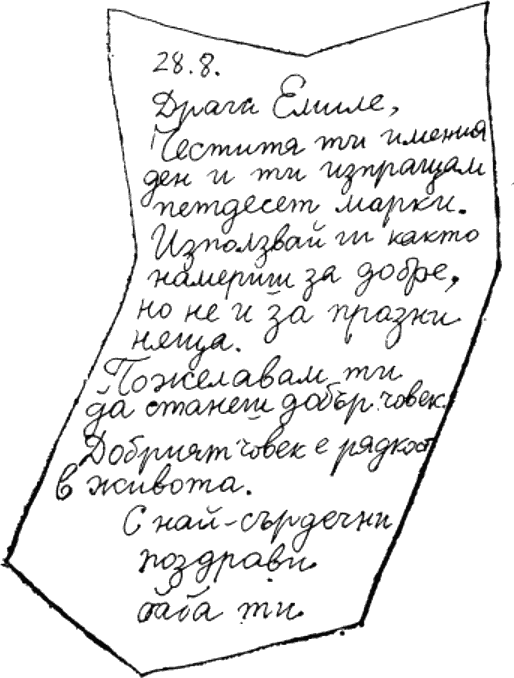 28.8.
Драги Емиле,
Честитя ти имения
ден и ти изпращам
петдесет марки.
Използвай ги както
намериш за добре,
но не и за празни
неща.
Пожелавам ти
да станеш добър човек.
Добрият човек е рядкост
в живота.
С най-сърдечни
поздрави
баба ти